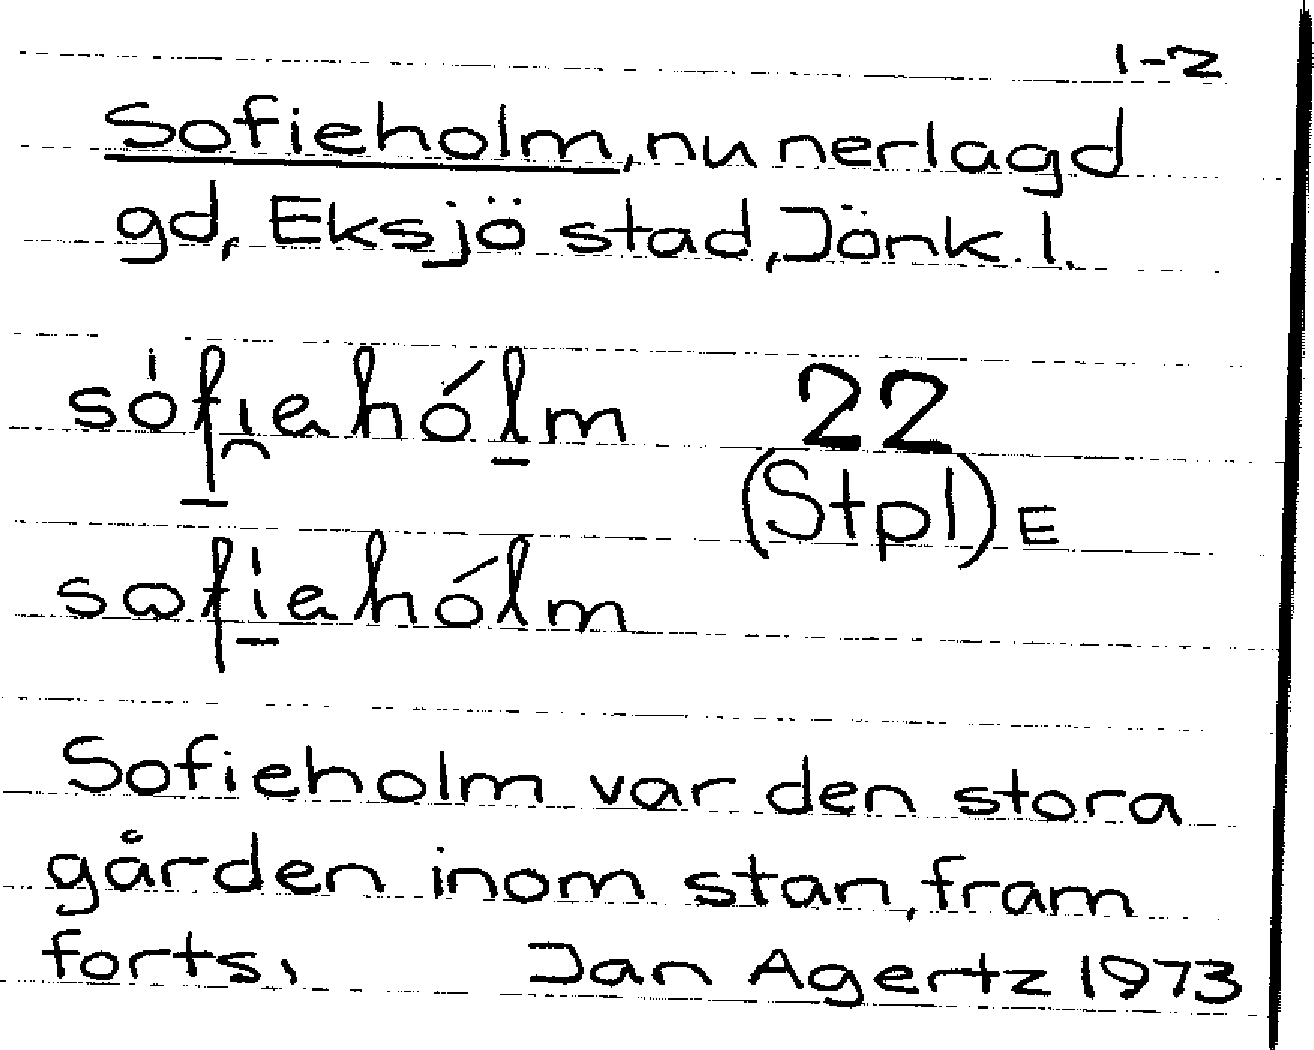 1-2
Sofieholm, nu nerlagd
gd, Eksjö stad, Jönk. l.
sófiehólm 22
(Stpl) E
sofiehólm
Sofieholm var den stora
gården inom stan, fram
forts. Jan Agertz 1973